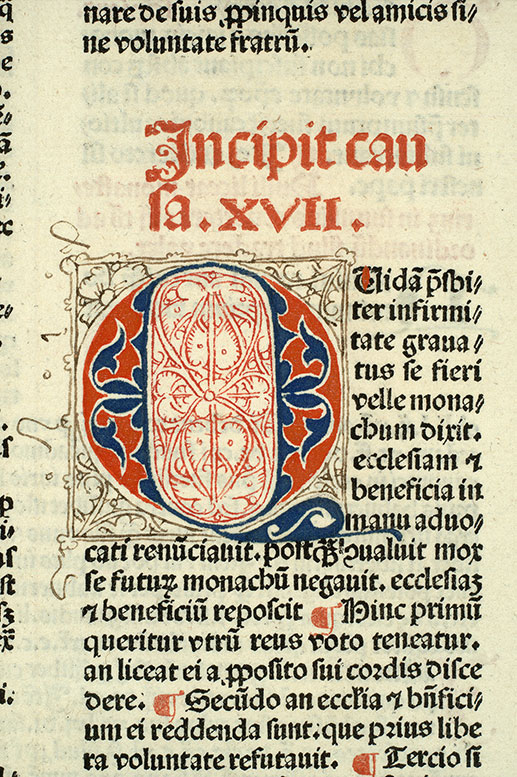 nare de suis ꝓpinquis vel amicis si⸗
ne voluntate fratrū.
Incipit cau
sa.XVII.
QUidā p̄sbi⸗
ter infirmi⸗
tate graua⸗
tus se fieri
velle mona⸗
chum dixit.
ecclesiam ⁊
beneficia in
manu aduo⸗
cati renūciauit. postꝙ̄ ↄualuit mox
se futurꝫ monachū negauit. ecclesiaꝫ
⁊ beneficiū reposcit ¶ Hinc primū
queritur vtrū reus voto teneatur.
an liceat ei a ꝓposito sui cordis disce
dere. ¶ Secūdo an eccl̄ia ⁊ bn̄fici⸗
um ei reddenda sunt. que prius libe
ra voluntate refutauit. ¶ Tercio si